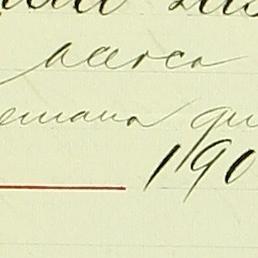 acerca
emana qu
190